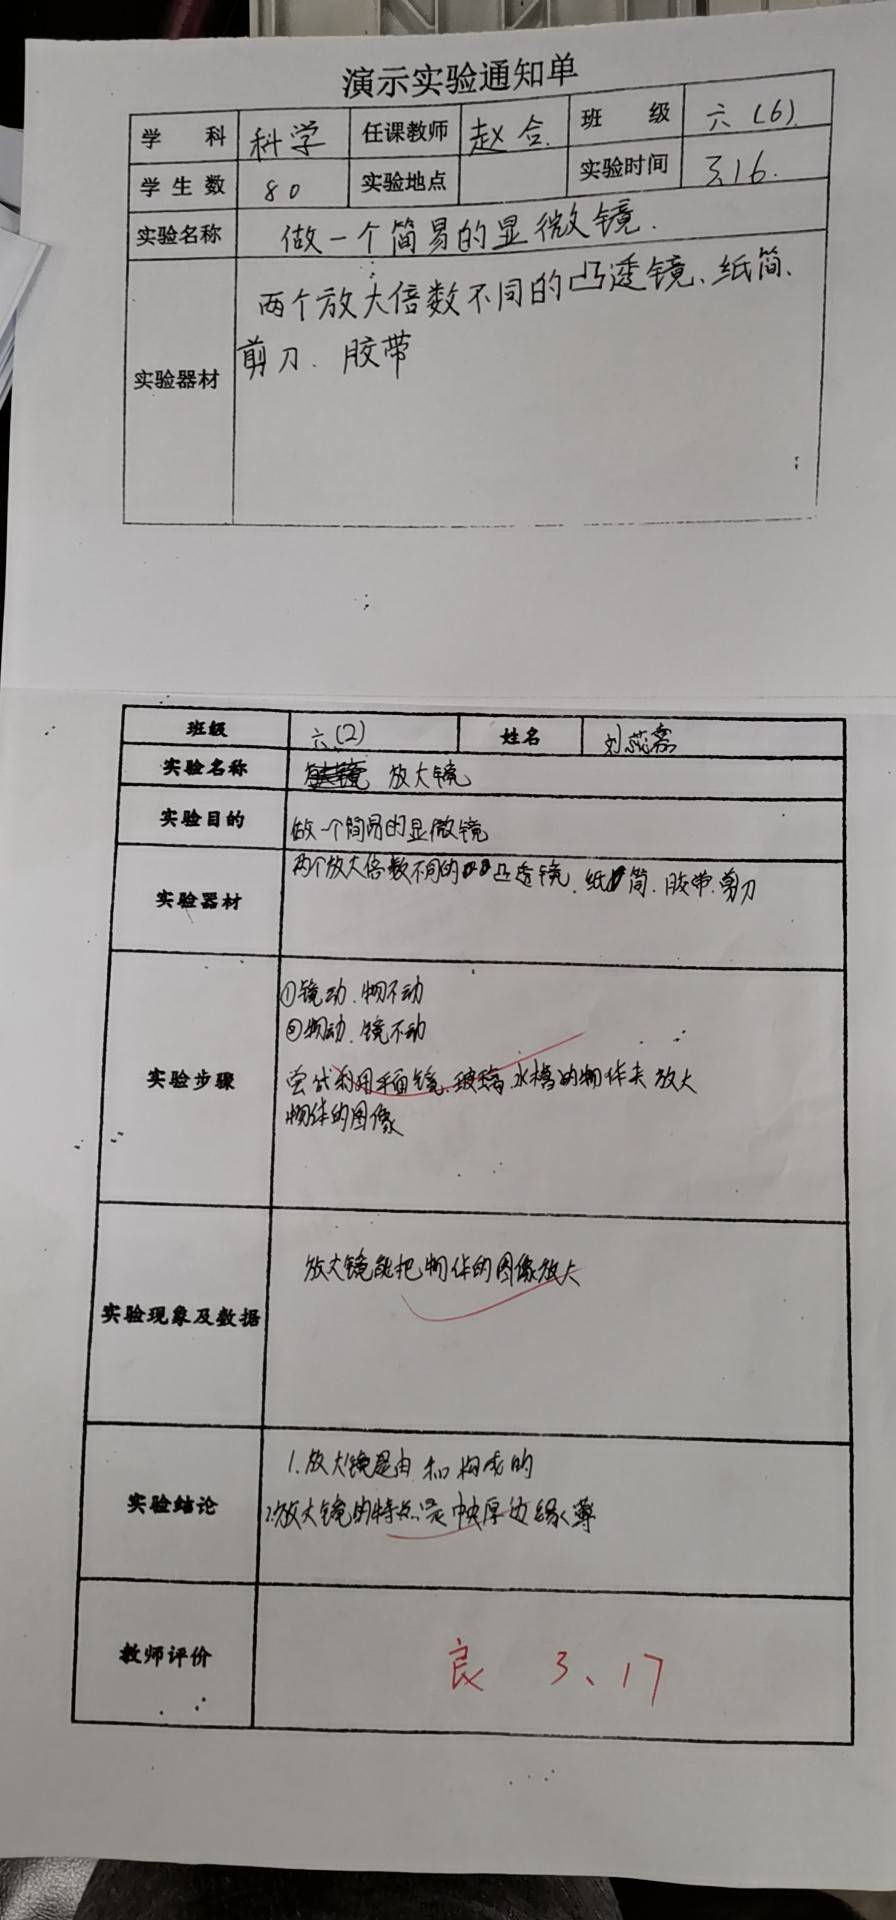 演示实验通知单
学 科 科学 任课教师 赵合 班 级 六(6)
学生数 80 实验地点 实验时间 3.16.
实验名称 做一个简易的显微镜.
实验器材 两个放大倍数不同的凸透镜、纸筒、
剪刀、胶带
班级 六(2) 姓名 刘
实验名称 放大镜
实验目的 做一个简易的显微镜
实验器材 两个放大倍数不同的凸透镜、纸筒、胶带、剪刀
实验步骤 ①镜动、物不动
②物动、镜不动
尝试利用平面镜、玻璃、水槽的物体来放大
物体的图像
实验现象及数据 放大镜能把物体的图像放大
实验结论 1.放大镜是由 和 构成的
2.放大镜的特点是中央厚边缘薄
教师评价 良 3、17